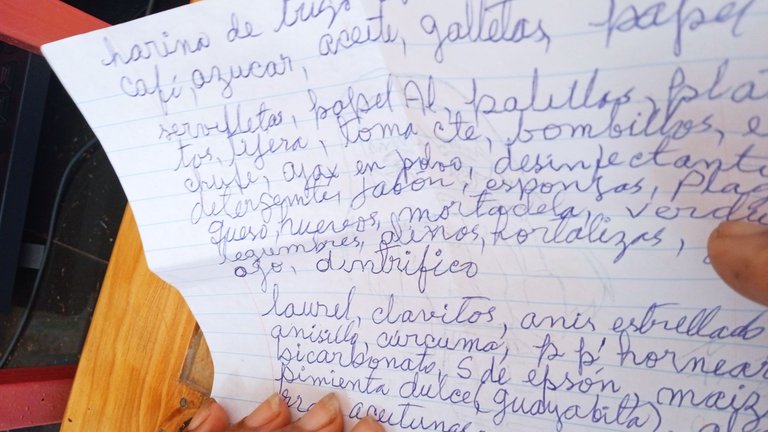 harina de trigo
café, azucar, aceite, galletas, papel
servilletas, papel Al, palillos, pla
tos, tijera, toma cte, bombillos, e
chufe, ajax en polvo, desinfectante
detergente, jabón, esponjas, Plag
queso, huevos, mortadela, verdu
legumbres, aliños, hortalizas,
ajo, dintrifico
laurel, clavitos, anis estrellado
anisillo, cúrcuma, p p' hornear
bicarbonato, S de epsón, maiz
pimienta dulce (guayabita),
aceitunas